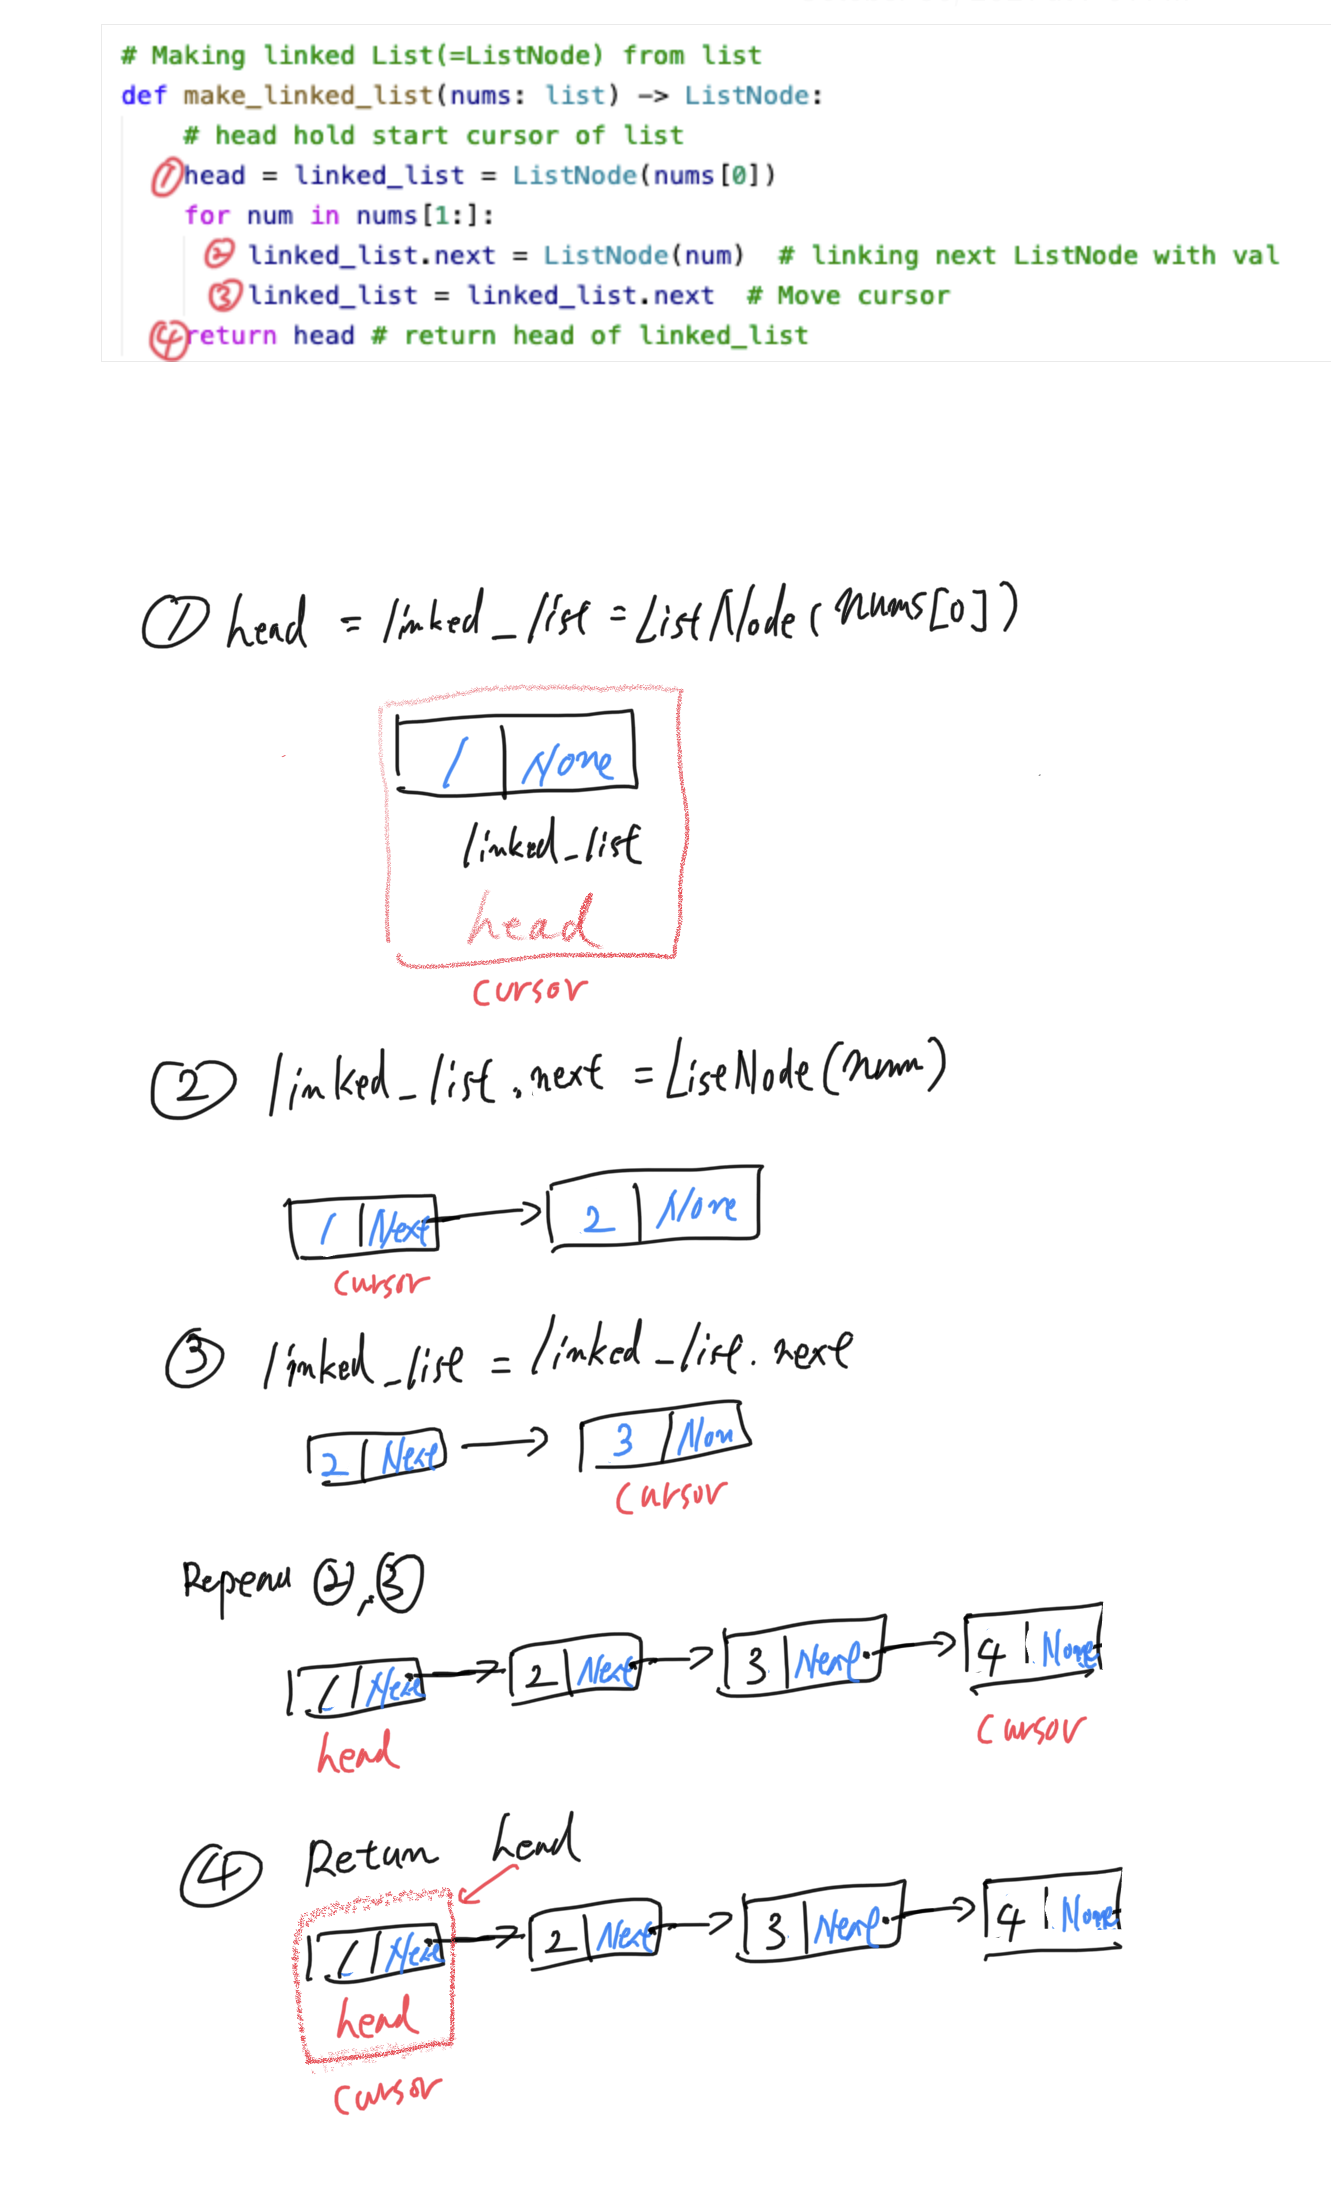 # Making linked List(=ListNode) from list
def make_linked_list(nums: list) -> ListNode:
# head hold start cursor of list
① head = linked_list = ListNode(nums[0])
for num in nums[1:]:
② linked_list.next = ListNode(num)  # linking next ListNode with val
③ linked_list = linked_list.next  # Move cursor
④ return head # return head of linked_list
① head = linked_list = ListNode(nums[0])
1 None
linked_list
head
cursor
② linked_list.next = ListNode(num)
1 Next 2 None
cursor
③ linked_list = linked_list.next
2 Next 3 Non
cursor
Repeat ②,③
1 Next 2 Next 3 Next 4 None
head cursor
④ Return head
1 Next 2 Next 3 Next 4 None
head
cursor